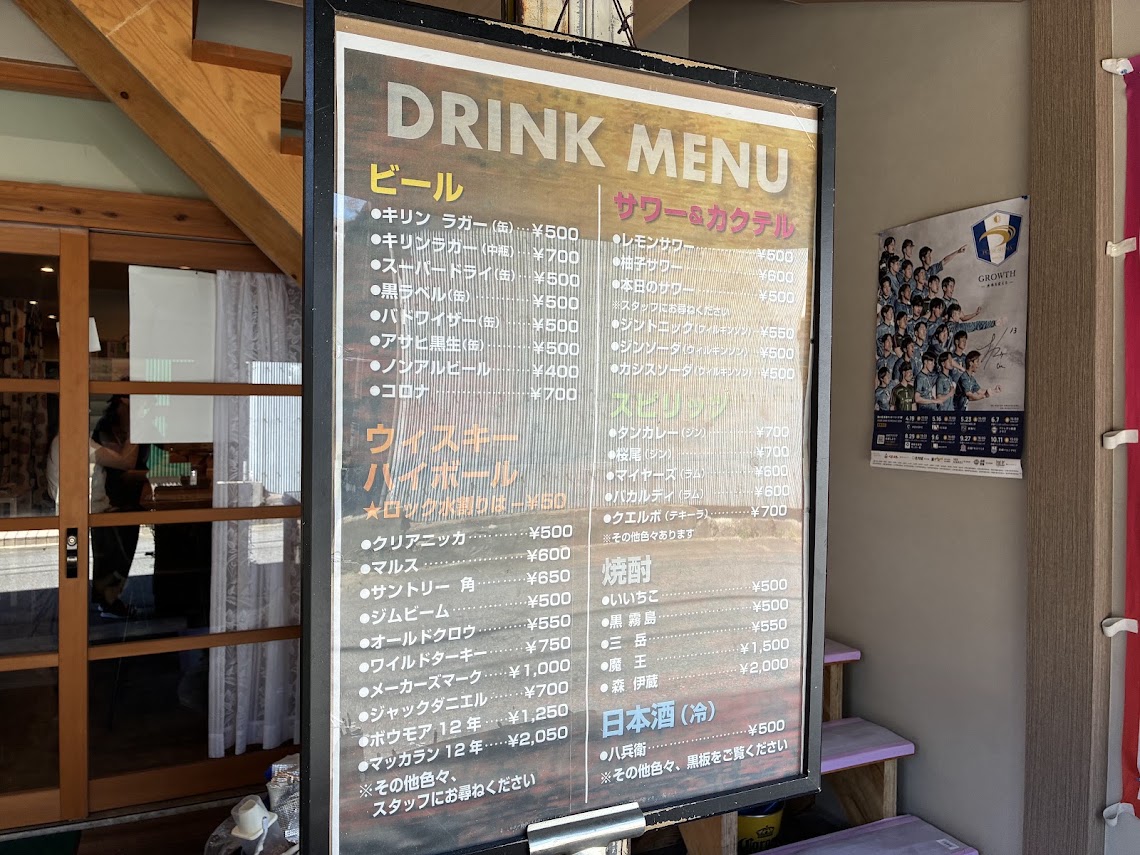 DRINK MENU
ビール
●キリン ラガー(缶)…¥500
●キリンラガー(中瓶)…¥700
●スーパードライ(缶)…¥500
●黒ラベル(缶)…¥500
●バドワイザー(缶)…¥500
●アサヒ黒生(缶)…¥500
●ノンアルビール…¥400
●コロナ…¥700
ウィスキー
ハイボール
★ロック水割りは−¥50
●クリアニッカ…¥500
●マルス…¥600
●サントリー 角…¥650
●ジムビーム…¥500
●オールドクロウ…¥550
●ワイルドターキー…¥750
●メーカーズマーク…¥1,000
●ジャックダニエル…¥700
●ボウモア 12 年…¥1,250
●マッカラン 12 年…¥2,050
※その他色々、
スタッフにお尋ねください
サワー&カクテル
●レモンサワー…¥500
●柚子サワー…¥600
●本日のサワー…¥500
※スタッフにお尋ねください
●ジントニック(ウィルキンソン)…¥550
●ジンソーダ(ウィルキンソン)…¥500
●カシスソーダ(ウィルキンソン)…¥500
スピリッツ
●タンカレー(ジン)…¥700
●桜尾(ジン)…¥700
●マイヤーズ(ラム)…¥600
●バカルディ(ラム)…¥600
●クエルボ(テキーラ)…¥700
※その他色々あります
焼酎
●いいちこ…¥500
●黒 霧 島…¥500
●三 岳…¥550
●魔 王…¥1,500
●森 伊蔵…¥2,000
日本酒(冷)
●八兵衛…¥500
※その他色々、黒板をご覧ください
GROWTH
4.19 5.16 5.23 6.7
8.29 9.6 9.27 10.11